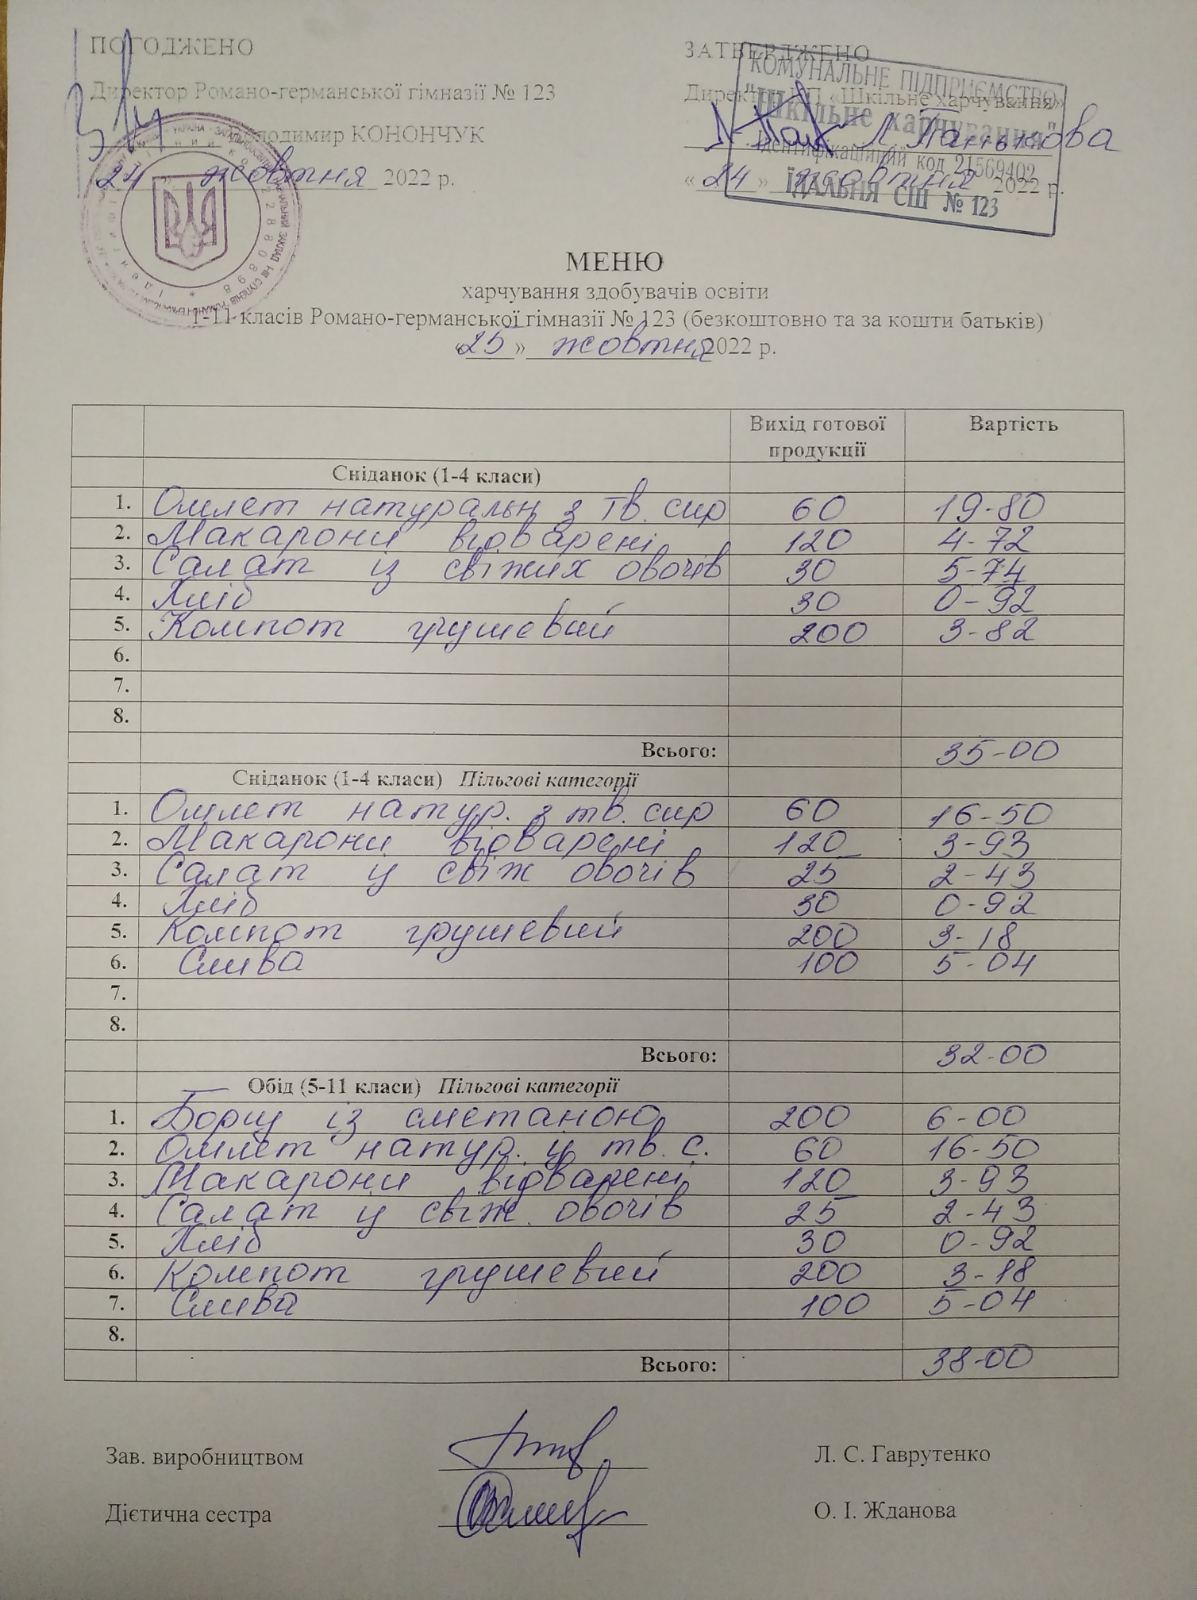 ПОГОДЖЕНО
Директор Романо-германської гімназії № 123
Володимир КОНОНЧУК
24 жовтня 2022 р.
ЗАТВЕРДЖЕНО
Директор КП «Шкільне харчування»
Л. Панькова
« 24 » жовтня 2022 р.
КОМУНАЛЬНЕ ПІДПРИЄМСТВО
"Шкільне харчування"
Ідентифікаційний код 21569402
ЇДАЛЬНЯ СШ № 123
МЕНЮ
харчування здобувачів освіти
1-11 класів Романо-германської гімназії № 123 (безкоштовно та за кошти батьків)
«25» жовтня 2022 р.
Вихід готової продукції Вартість
Сніданок (1-4 класи)
1. Омлет натуральн з тв. сир 60 19-80
2. Макарони відварені 120 4-72
3. Салат із свіжих овочів 30 5-74
4. Хліб 30 0-92
5. Компот грушевий 200 3-82
6.
7.
8.
Всього: 35-00
Сніданок (1-4 класи) Пільгові категорії
1. Омлет натур. з тв. сир 60 16-50
2. Макарони відварені 120 3-93
3. Салат із свіж овочів 25 2-43
4. Хліб 30 0-92
5. Компот грушевий 200 3-18
6. Слива 100 5-04
7.
8.
Всього: 32-00
Обід (5-11 класи) Пільгові категорії
1. Борщ із сметаною 200 6-00
2. Омлет натур. із тв. с. 60 16-50
3. Макарони відварені 120 3-93
4. Салат із свіж. овочів 25 2-43
5. Хліб 30 0-92
6. Компот грушевий 200 3-18
7. Слива 100 5-04
8.
Всього: 38-00
Зав. виробництвом Л. С. Гаврутенко
Дієтична сестра О. І. Жданова